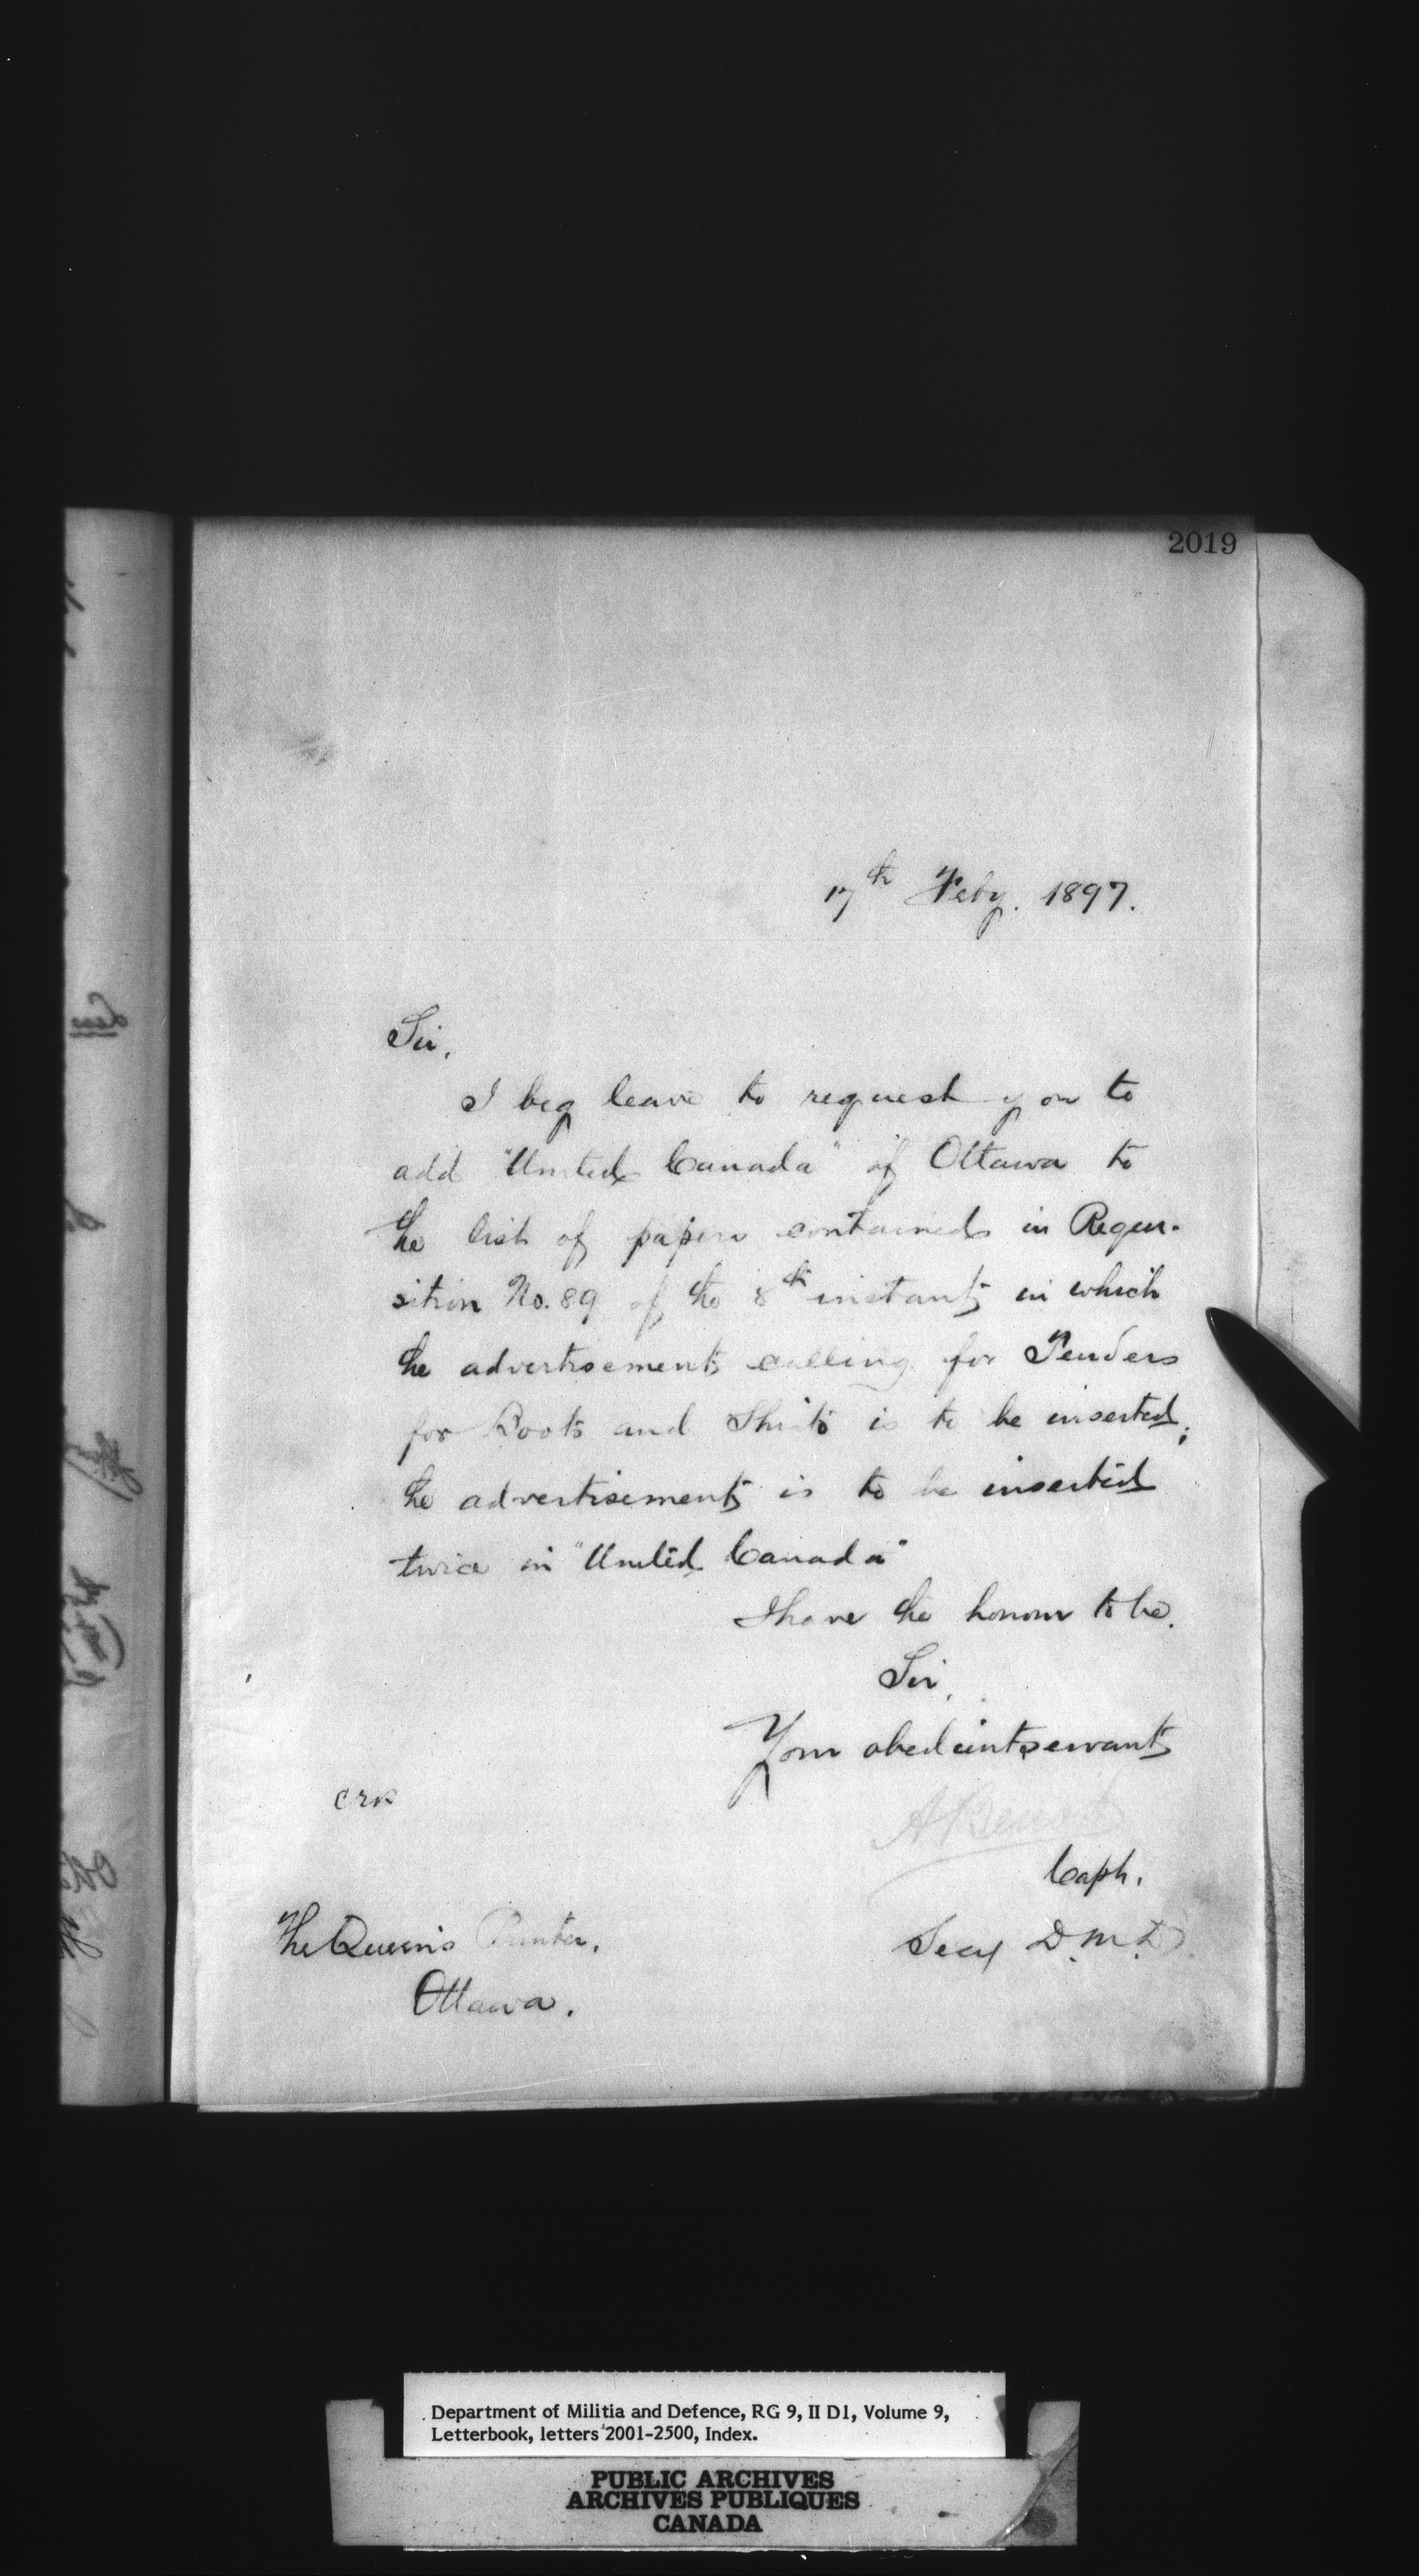 2019
17th Feby. 1897.
Sir,
I beg leave to request you to
add "United Canada" of Ottawa to
the list of papers contained in Requi-
sition No. 89 of the 8th instant in which
the advertisement calling for Tenders
for Boots and Shirts is to be inserted;
the advertisement is to be inserted
twice in "United Canada"
I have the honour to be,
Sir,
Your obedient servant
A Benoit
Capt.
Secy D.M.D.
The Queen's Printer,
Ottawa.
Department of Militia and Defence, RG 9, II D1, Volume 9,
Letterbook, letters 2001-2500, Index.
PUBLIC ARCHIVES
ARCHIVES PUBLIQUES
CANADA